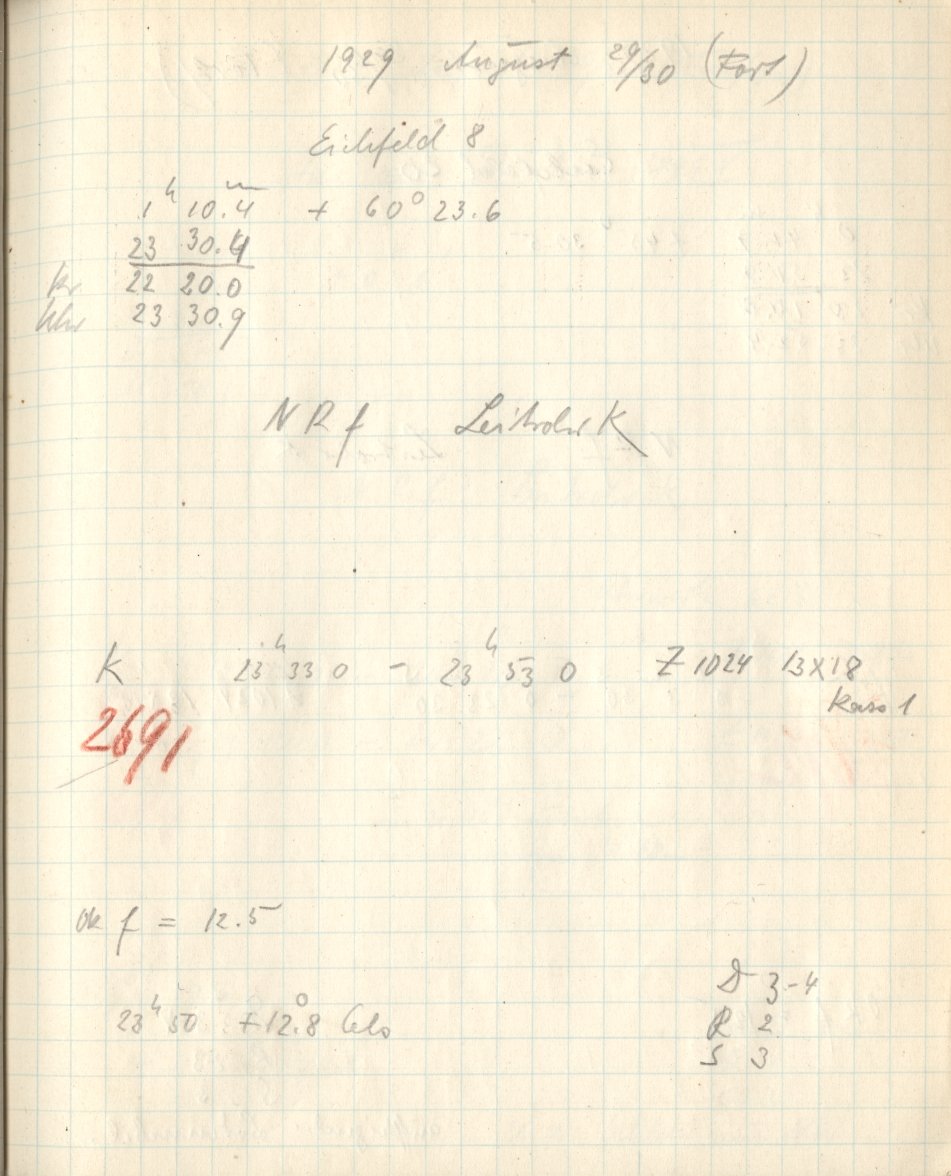 1929 August 29/30 (Forts)
Eichfeld 8
1h 10.4m + 60° 23.6
23 30.4
kr 22 20.0
Uhr 23 30.9
N R f Leitrohr K
K 23h 33 0 - 23h 53 0 Z 1024 13x18
Kass 1
2691
ok f = 12.5
23h 50 +12.8° Cels
D 3-4
R 2
S 3